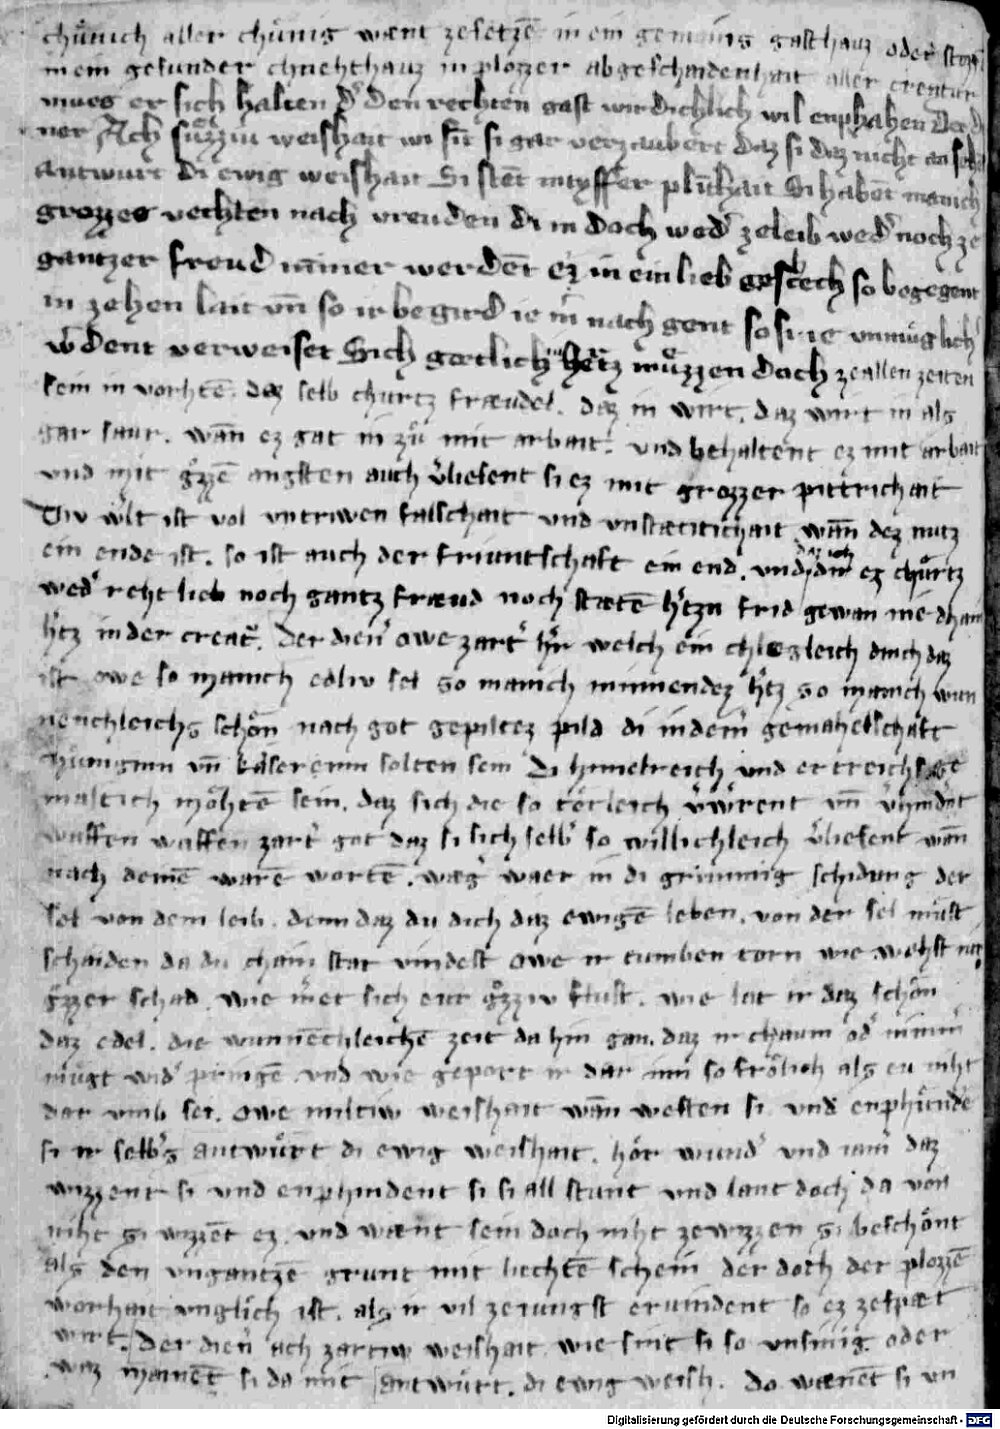 chůnich aller chůnig wænt zesetzē in ein gemains gasthauz oder
in ein gesunder chnehthauz in plozzer abgeschaidenhait aller creatur
mues er sich halten d' den rechten gast wirdichlich wil enphahen Der di
ner Ach suͤzziu weishait wi sīt si gar verzaubert daz si daz nicht an
antwurt Di ewig weishait Si stēt in tyffer plīthait Si habēt manich
grozzes vechten nach vreuden di in doch wed' zeleib wed' noch ze
gantzer freud nīmer werdēt Ez in ein lieb geschech so begegent
in zehen lait vn̄ so ir begird ie mī nach gent so si ie vnmuͤglich'
w'dent verweiset Sich gœtlich' h'tz muͤzzen doch zeallen zeiten
sein in vorhtē. daz selb churtz fræudel. daz in wirt. daz wirt in als
gar saur. wān ez gat in zů mit arbait. vnd behaltent ez mit arbait
vnd mit gͦzzē angsten auch v'liesent si ez mit grozzer pittrichait
Diu w'lt ist vol vntriwen falschait vnd vnstætichait wān dez nutz
ein ende ist. so ist auch der friuntschaft ein end. vnd daz ich dir ez chuͤrtz
wed' reht lieb noch gantz fræud noch stætē h'tzn frid gewan nie dhain
h'tz in der creat'. Der dien' owe zart' h'r welch ein chlægleich dinch daz
ist owe so manich edliv sel so manich minnendez h'tz so manich wun
nenchleichs schön nach got gepiltez pild di in deiner gemahelschaft
chůniginn vn̄ kaiserinn solten sein Di himelreich vnd ertreichs ge
waltich möhtē sein. daz sich die so törleich v'wͤrent vn̄ v'nident
waffen waffen zart' got daz si sich selb' so willichleich v'liesent wān
nach deinē warē wortē. wæg' waer in di grimmig schidung der
sel von dem leib. denn daz du dich daz ewigē leben. von der sel muͤst
schaiden da du chain stat vindest owe ir tumben torn wie wehst
gͦzzer schad. wie met sich eur gͦzziv flust. wie lat ir daz schön
daz edel. die wunnēchleichē zeit da hin gan. daz ir chaum od' nim'
mügt wid' pringē vnd wie gepart ir dar inn so frölich als eu niht
dar vmb sei. owe miltiw weishait wān westen si vnd enphündē
si ir selb's antwuͤrt di ewig weishait. hör wund' vnd iam' daz
wizzent si vnd enphindent si si all stunt vnd lant doch da von
niht si wizzēt ez vnd wænt sein doch niht zewizzen si beschönt
als den vngantzē grunt mit liechtē schein der doch der plozzē
worhait vnglich ist. als ir vil zeiungst ervindent so ez zespæt
wirt. Der dien' ach zartiw weishait wie sint si so vnsinig oder
waz mainēt si da mit antwuͤrt. di ewig weish. Do wænēt si vn
Digitalisierung gefördert durch die Deutsche Forschungsgemeinschaft - DFG